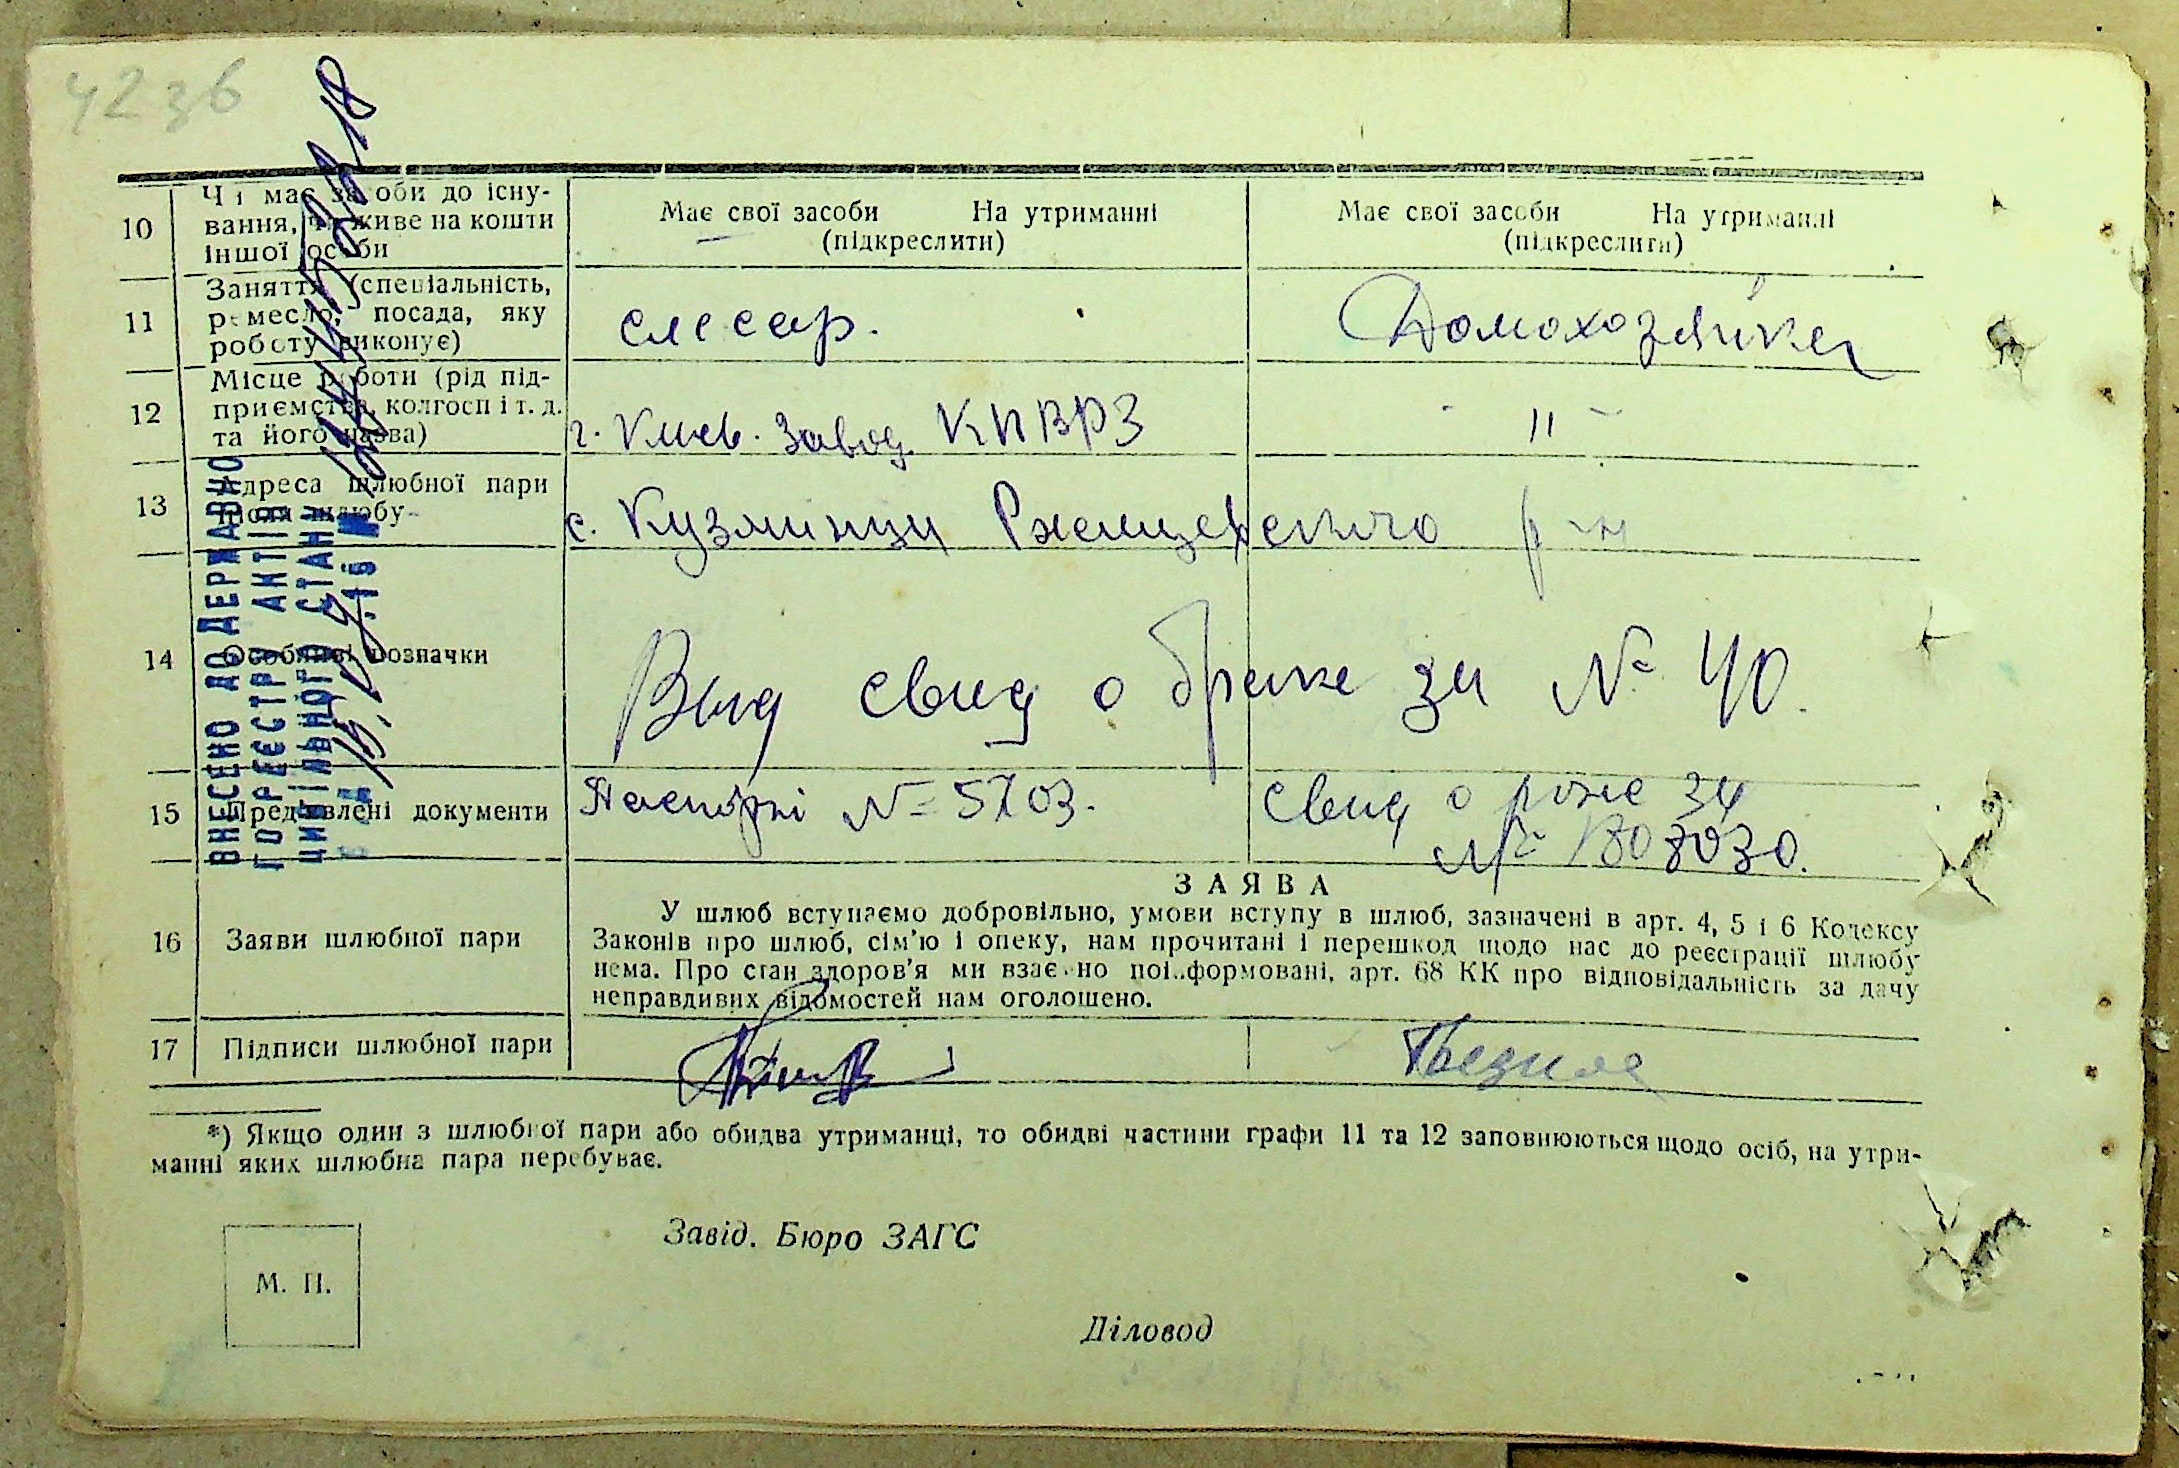 42зв
10
Чи має засоби до існу-
вання, чи живе на кошти
іншої особи
Має свої засоби На утриманні
(підкреслити)
Має свої засоби На утриманні
(підкреслити)
11
Заняття (спеціальність,
ремесло, посада, яку
роботу виконує)
слесар.
Домохозяйка
12
Місце роботи (рід під-
приємства, колгосп і т. д.
та його назва)
г. Киев. завод КПВРЗ
- 11 -
13
Адреса шлюбної пари
після шлюбу
с. Кузминци Ржищевского р-н
14
Особливі позначки
Выд свид о браке за № 40.
15
Пред'явлені документи
Паспорт № 5703.
свид о рожд за
№
16
Заяви шлюбної пари
ЗАЯВА
У шлюб вступаємо добровільно, умови вступу в шлюб, зазначені в арт. 4, 5 і 6 Кодексу
Законів про шлюб, сім'ю і опеку, нам прочитані і перешкод щодо нас до реєстрації шлюбу
нема. Про стан здоров'я ми взаємно поінформовані, арт. 68 КК про відповідальність за дачу
неправдивих відомостей нам оголошено.
17
Підписи шлюбної пари
*) Якщо один з шлюбної пари або обидва утриманці, то обидві частини графи 11 та 12 заповнюються щодо осіб, на утри-
манні яких шлюбна пара перебуває.
Завід. Бюро ЗАГС
М. П.
Діловод
ВНЕСЕНО ДО ДЕРЖАВНО
ГО РЕЄСТРУ АКТІВ
ЦИВІЛЬНОГО СТАНУ